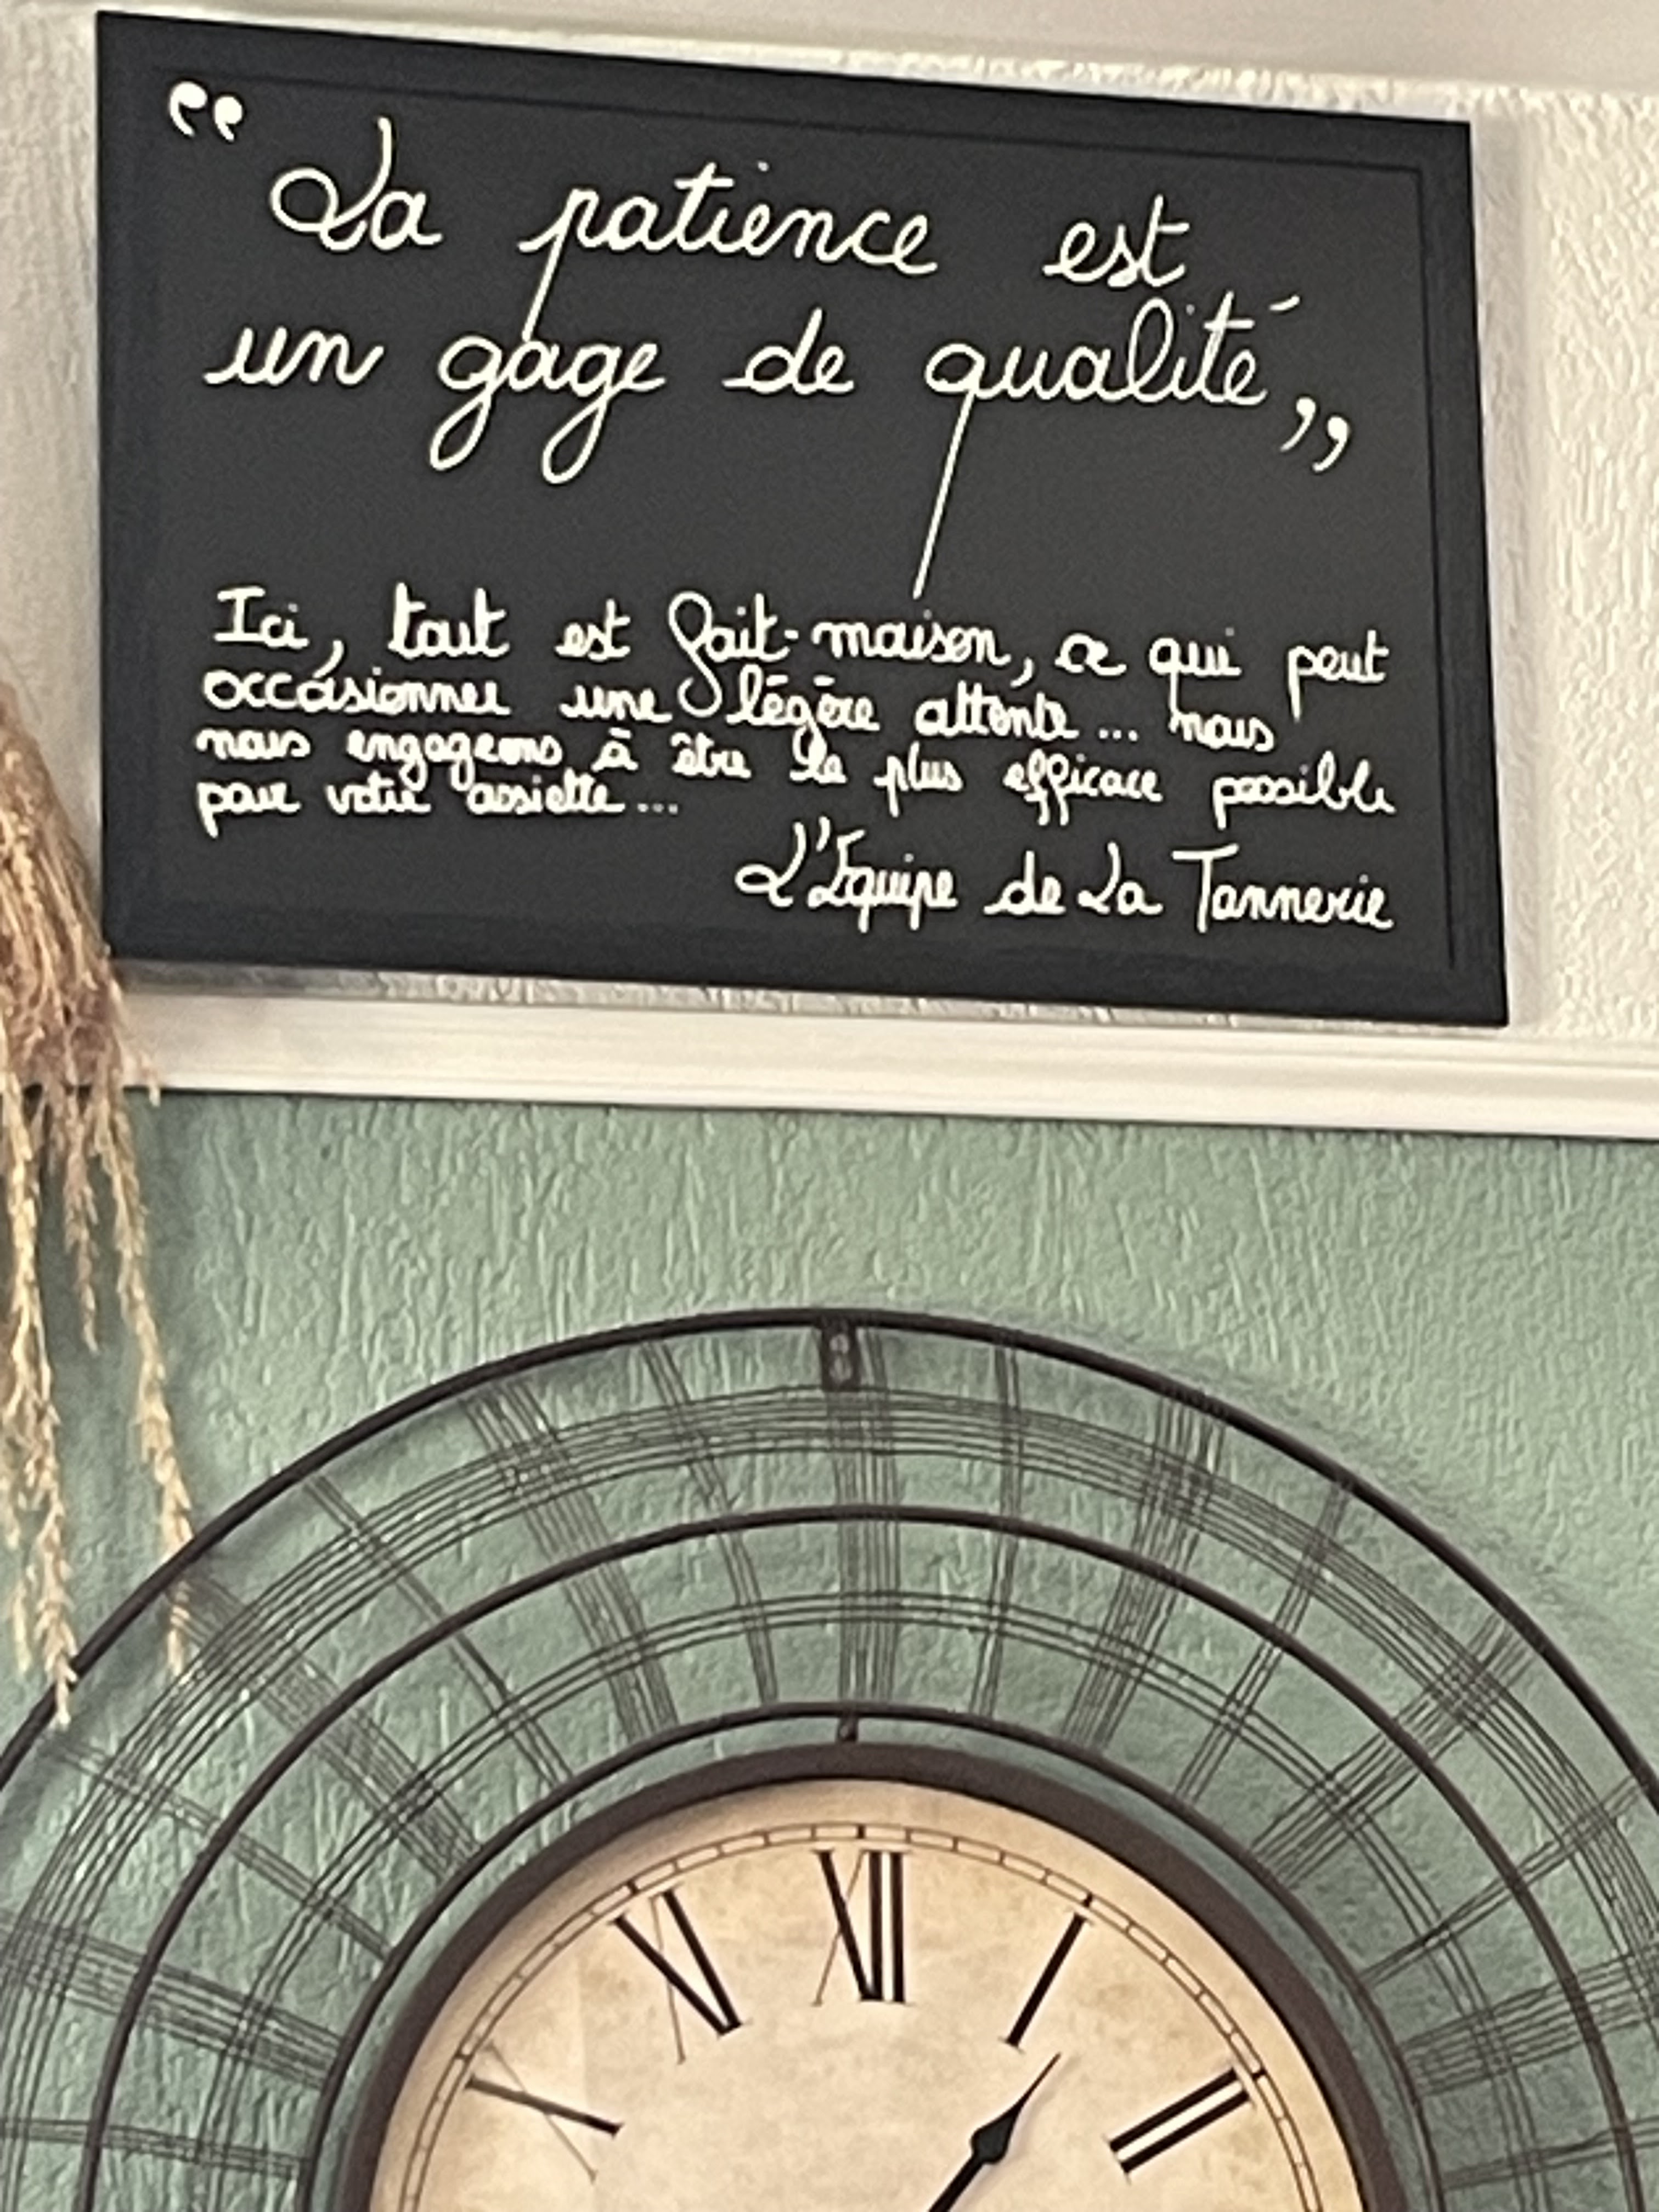 “ La patience est
un gage de qualité „
Ici, tout est fait-maison, ce qui peut
occasionner une légère attente... nous
nous engageons à être le plus efficace possible
pour votre assiette...
L'Équipe de La Tannerie
XII
XI
I
X
II